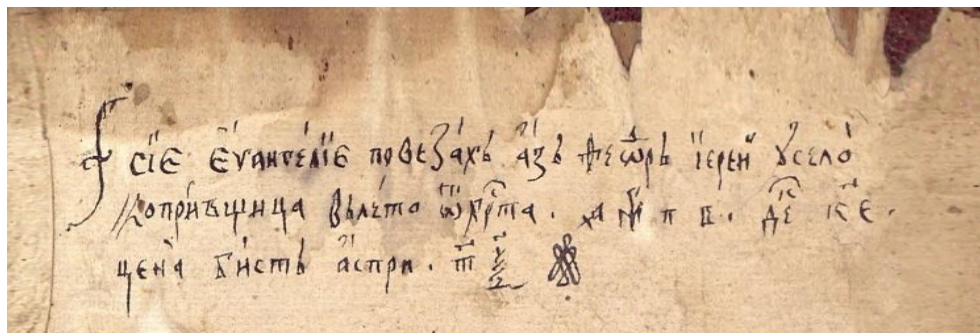 сїе єѵангелїе повезахь азь Ѳеѡрь їереи ѹ село
копривщица вьлѣто ѿ хрⷭта. ҂а҃ х п в. дек к҃є.
цена бисть аспри. т҃